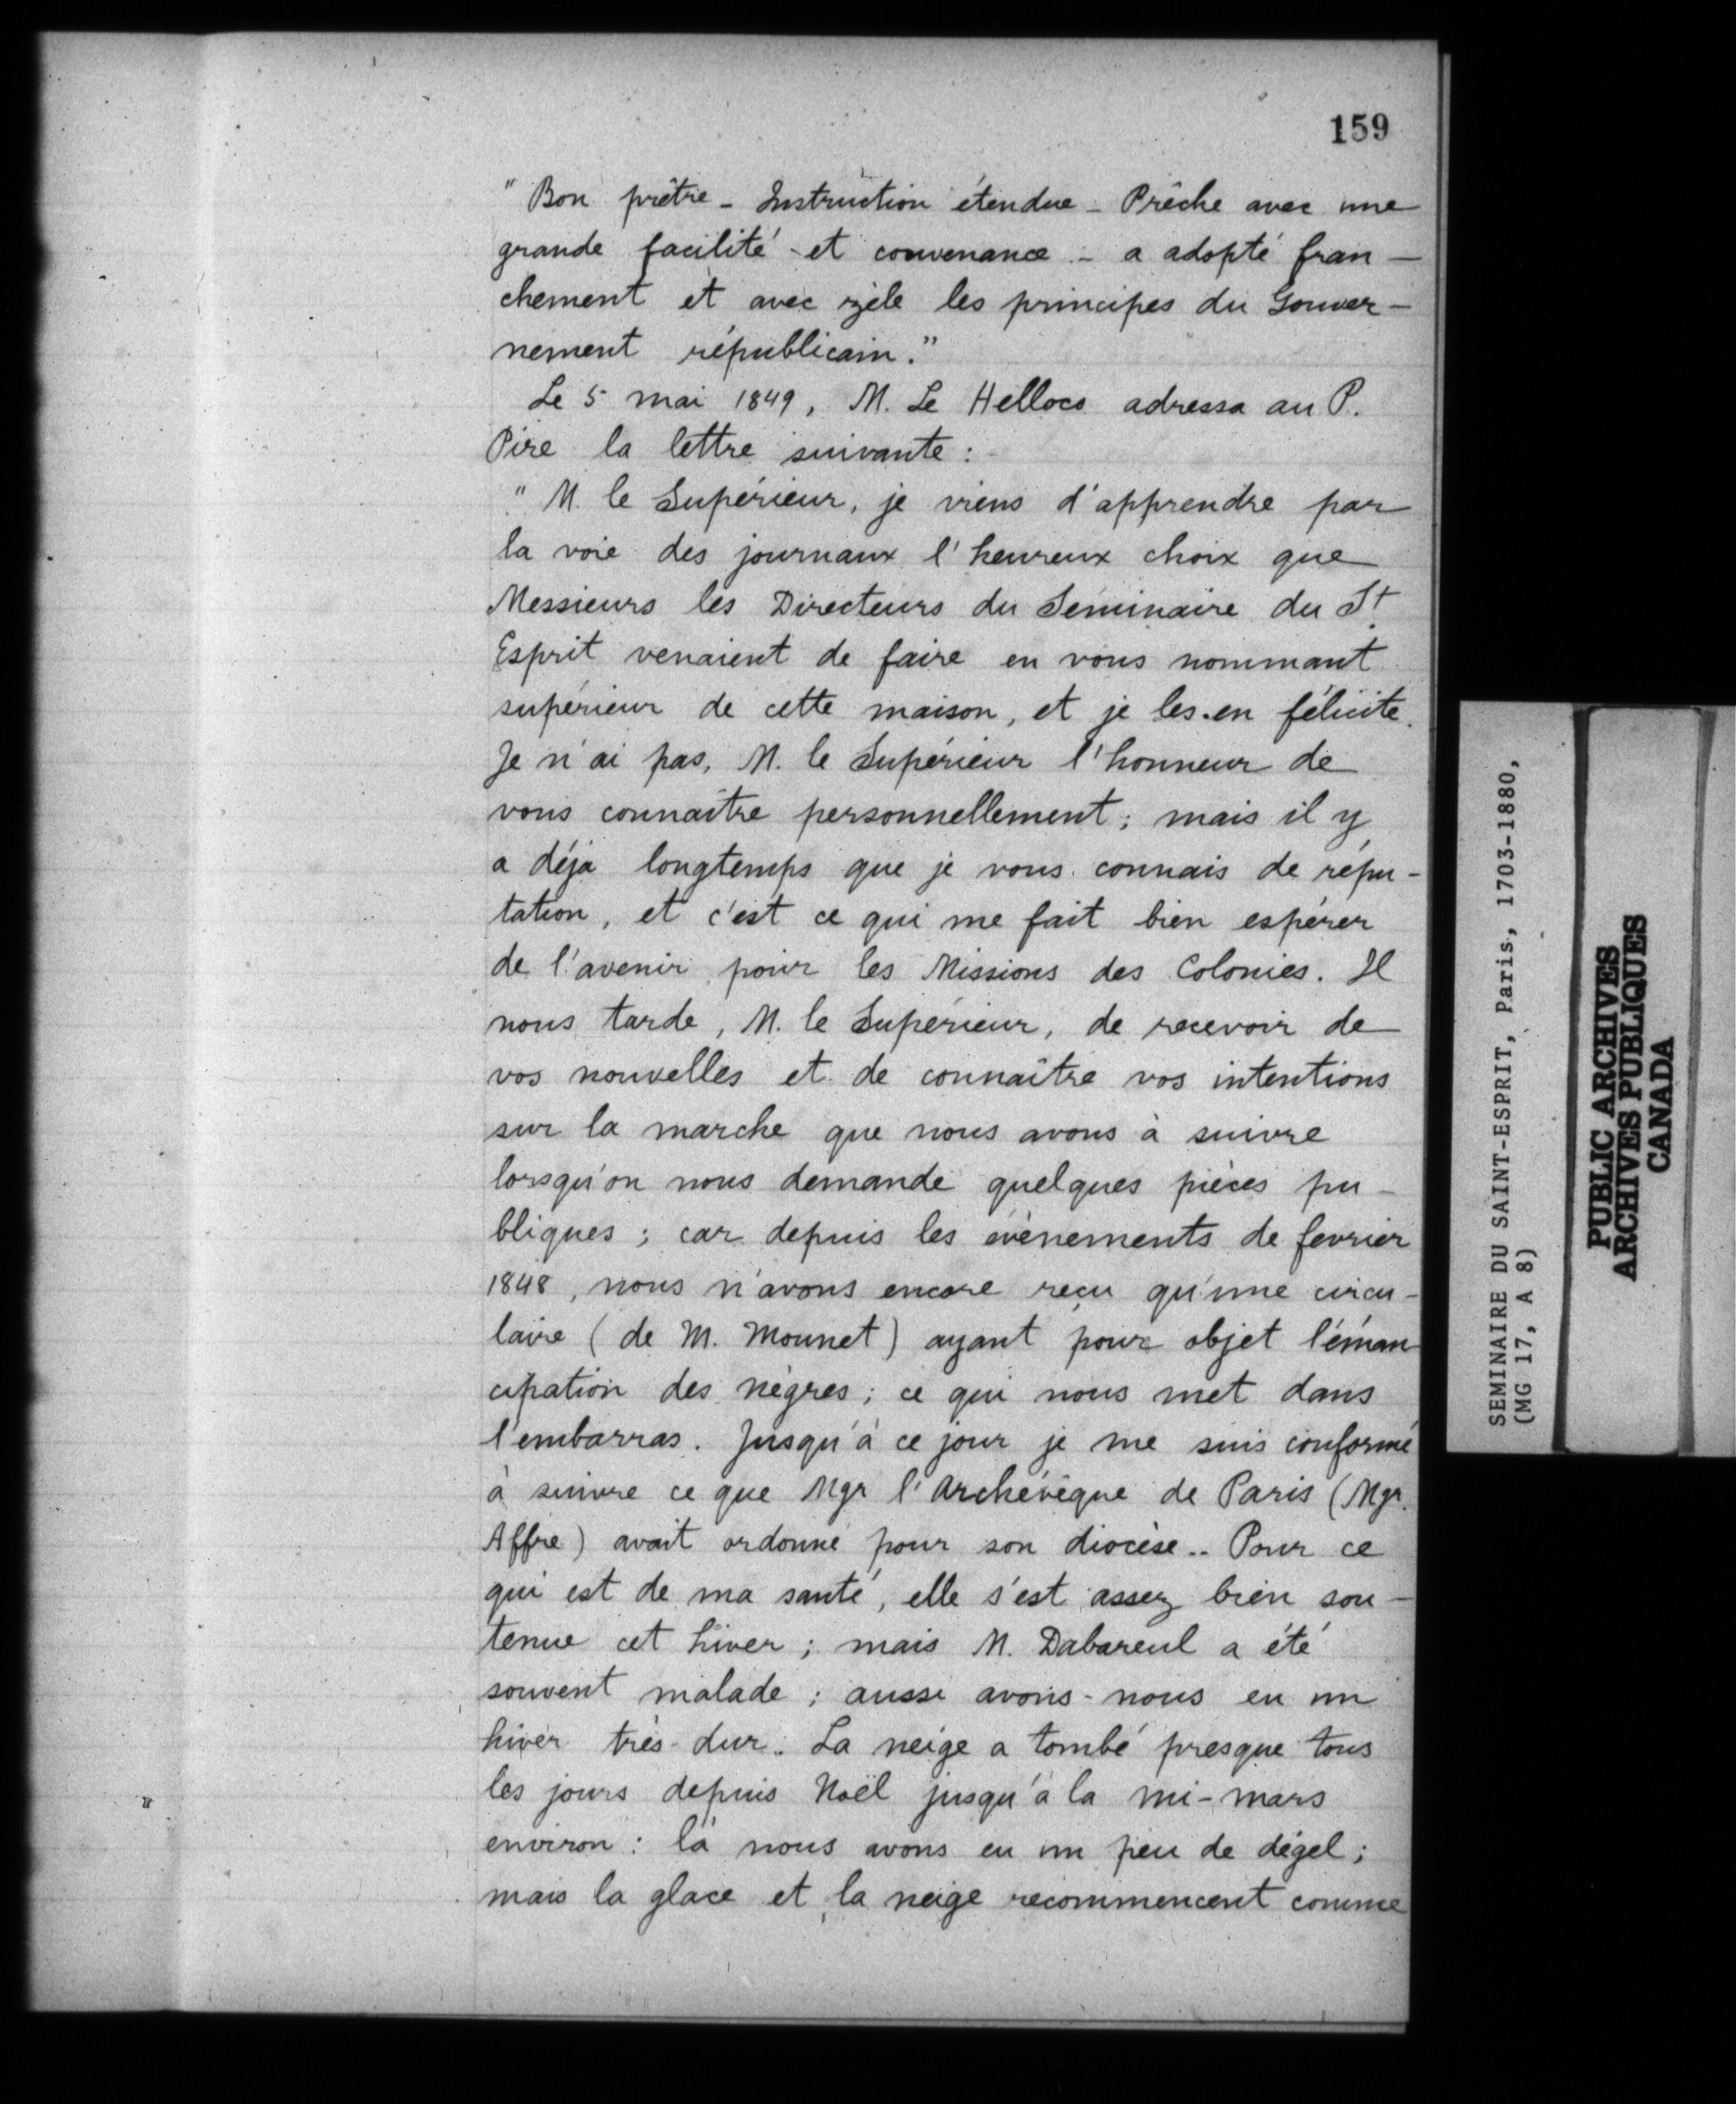 159
" Bon prêtre - Instruction étendue - Prêche avec une
grande facilité et convenance - a adopté fran-
chement et avec zèle les principes du Gouver-
nement républicain."
Le 5 mai 1849, M. Le Helloco adressa au P.
Pire la lettre suivante :
" M. le Supérieur, je viens d'apprendre par
la voie des journaux l'heureux choix que
Messieurs les Directeurs du Séminaire du St
Esprit venaient de faire en vous nommant
supérieur de cette maison, et je les en félicite.
Je n'ai pas, M. le Supérieur l'honneur de
vous connaître personnellement ; mais il y
a déjà longtemps que je vous connais de répu-
tation, et c'est ce qui me fait bien espérer
de l'avenir pour les Missions des Colonies. Il
nous tarde, M. le Supérieur, de recevoir de
vos nouvelles et de connaître vos intentions
sur la marche que nous avons à suivre
lorsqu'on nous demande quelques pièces pu-
bliques ; car depuis les évènements de fevrier
1848, nous n'avons encore reçu qu'une circu-
laire (de M. Monnet) ayant pour objet l'éman
cipation des nègres ; ce qui nous met dans
l'embarras. Jusqu'à ce jour je me suis conformé
à suivre ce que Mgr l'Archévêque de Paris (Mgr.
Affre) avait ordonné pour son diocèse.. Pour ce
qui est de ma santé, elle s'est assez bien sou-
tenue cet hiver ; mais M. Dabareul a été
souvent malade ; aussi avons-nous eu un
hiver très-dur. La neige a tombé presque tous
les jours depuis Noël jusqu'à la mi-mars
environ : là nous avons eu un peu de dégel ;
mais la glace et la neige recommencent comme
SEMINAIRE DU SAINT-ESPRIT, Paris, 1703-1880,
(MG 17, A 8)
PUBLIC ARCHIVES
ARCHIVES PUBLIQUES
CANADA